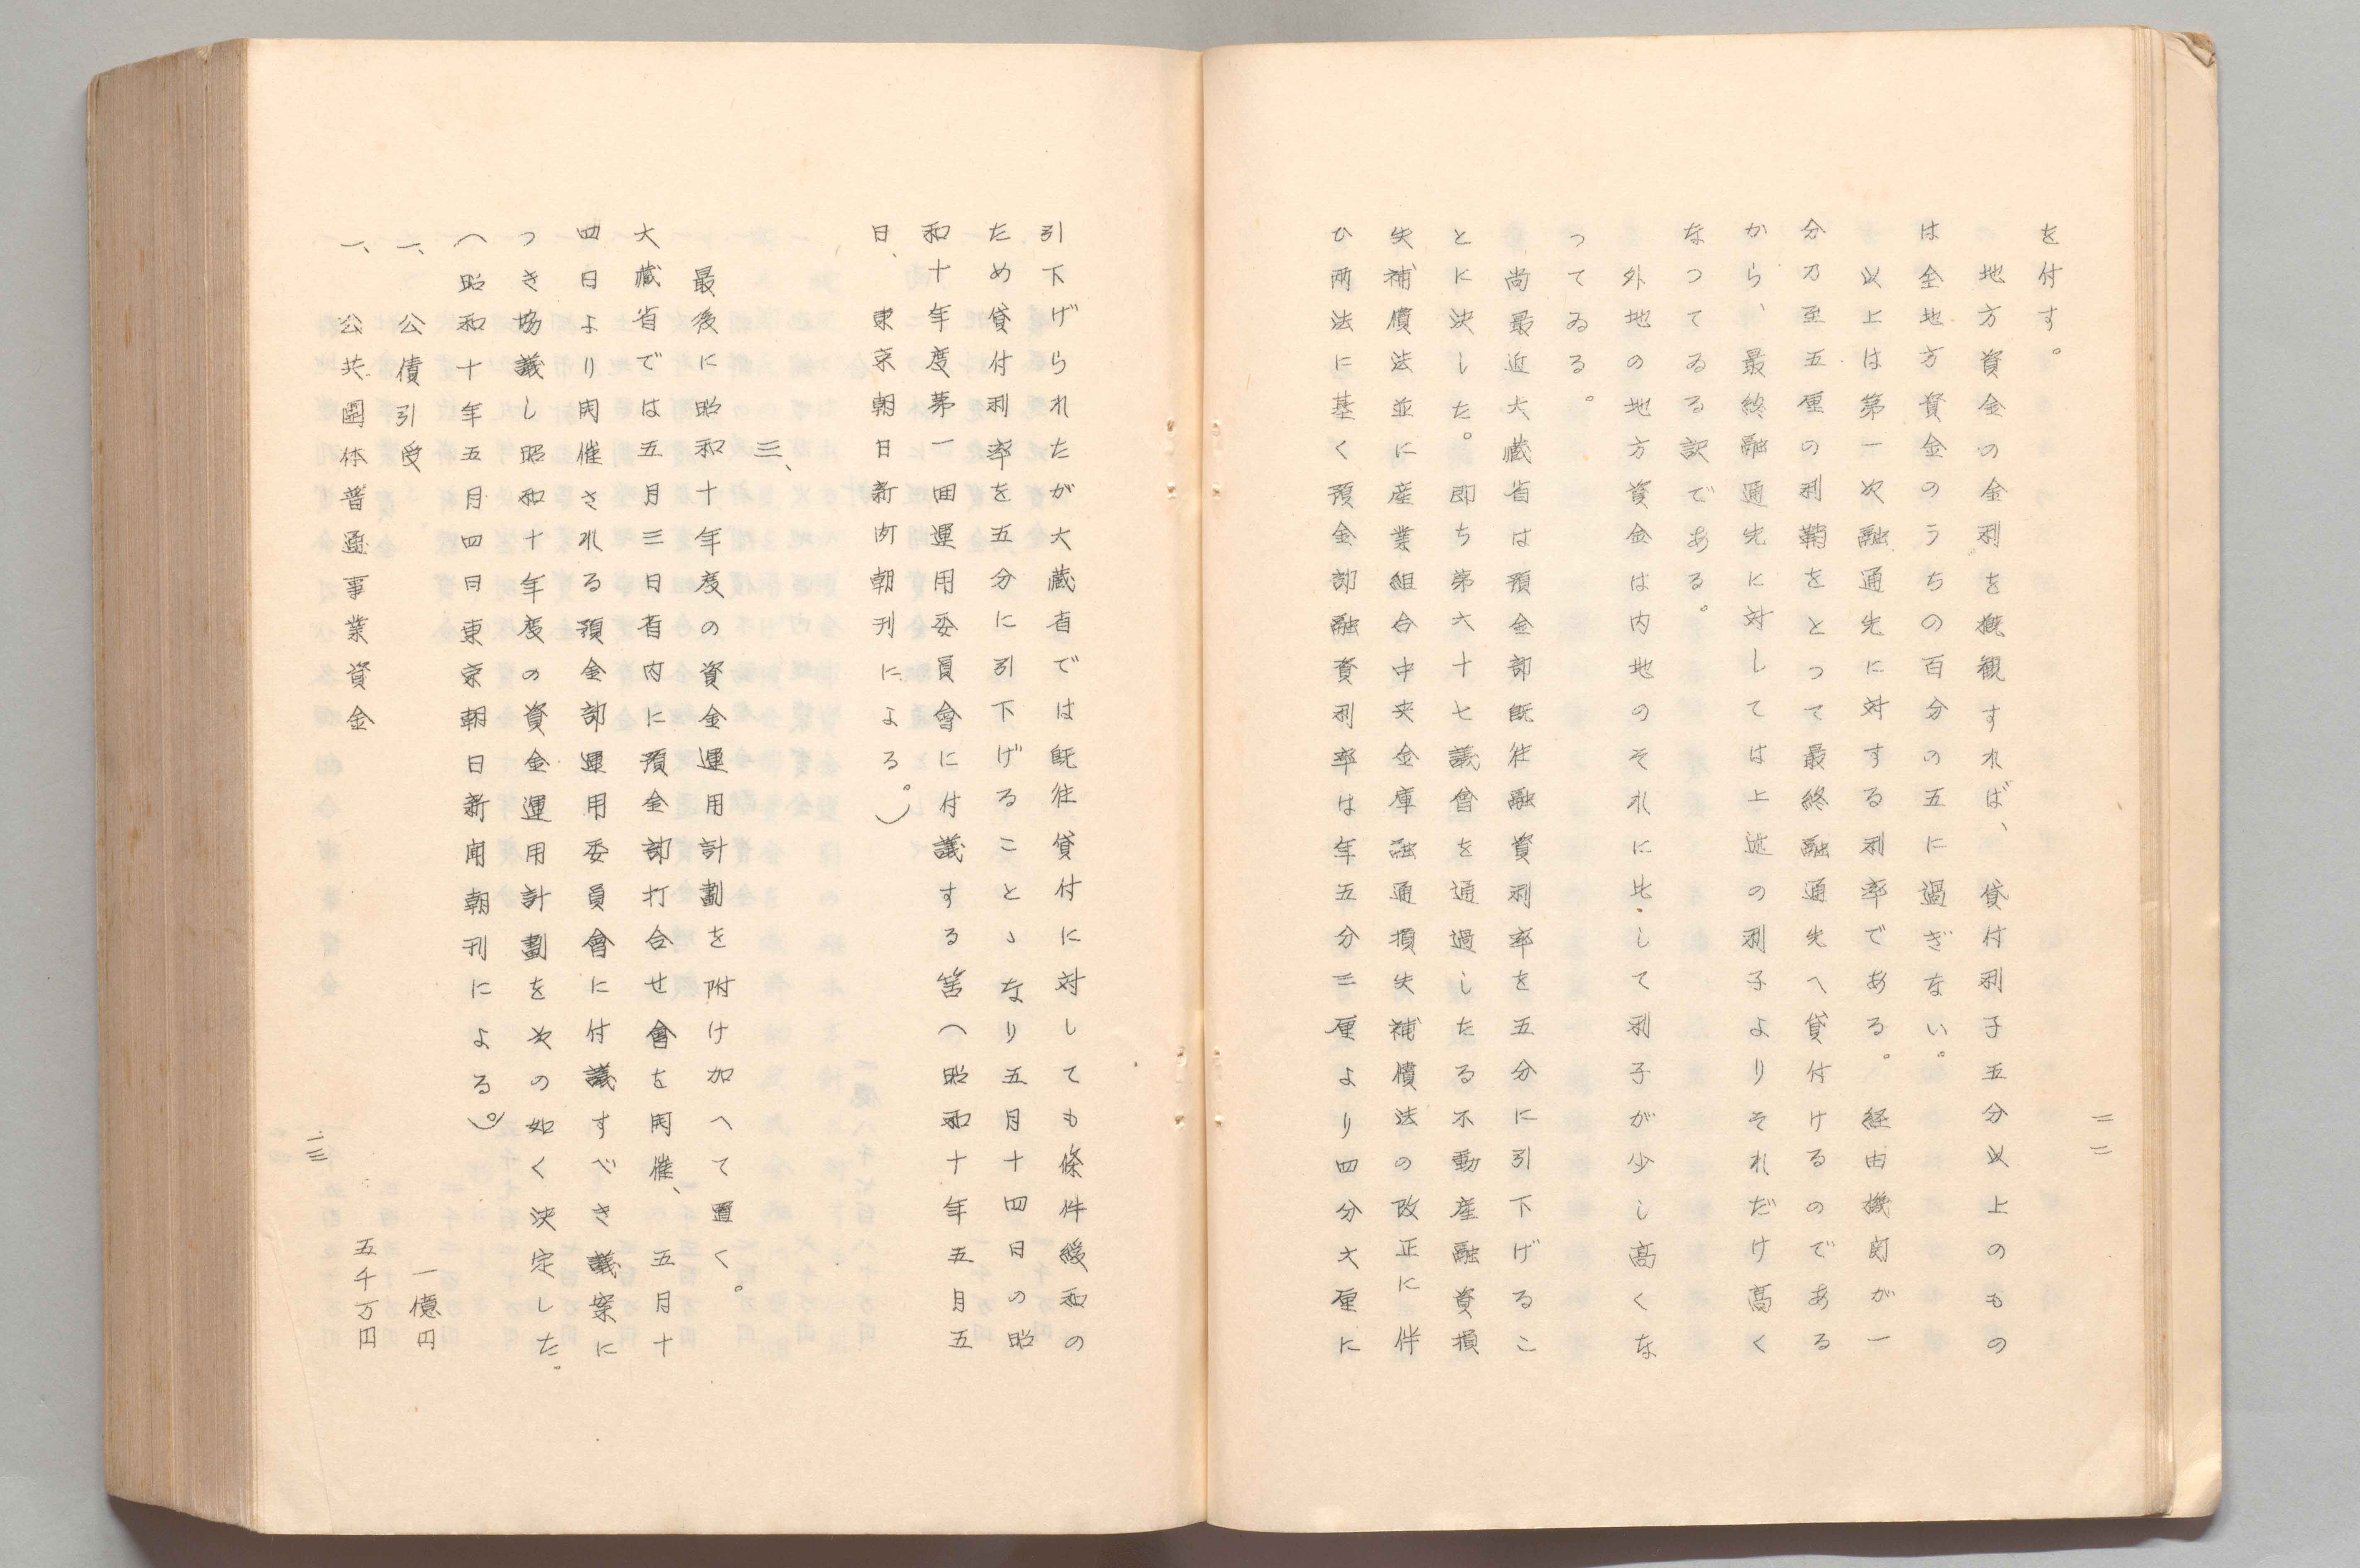 二二
を付す。
地方資金の金利を概観すれば、貸付利子五分以上のもの
は全地方資金のうちの百分の五に過ぎない。
以上は第一次融通先に対する利率である。経由機関が一
分乃至五厘の利鞘をとつて最終融通先へ貸付けるのである
から、最終融通先に対しては上述の利子よりそれだけ高く
なつてゐる訳である。
外地の地方資金は内地のそれに比して利子が少し高くな
つてゐる。
尚最近大蔵省は預金部既往融資利率を五分に引下げるこ
とに決した。即ち第六十七議會を通過したる不動産融資損
失補償法並に産業組合中央金庫融通損失補償法の改正に伴
ひ両法に基く預金部融資利率は年五分三厘より四分六厘に
引下げられたが大蔵省では既往貸付に対しても條件緩和の
ため貸付利率を五分に引下げることゝなり五月十四日の昭
和十年度第一回運用委員會に付議する筈(昭和十年五月五
日、東京朝日新聞朝刊による。)
三、
最後に昭和十年度の資金運用計劃を附け加へて置く。
大蔵省では五月三日省内に預金部打合せ會を開催、五月十
四日より開催される預金部運用委員會に付議すべき議案に
つき協議し昭和十年度の資金運用計劃を次の如く決定した。
(昭和十年五月四日東京朝日新聞朝刊による。)
一、公債引受 一億円
一、公共團体普通事業資金 五千万円
二三